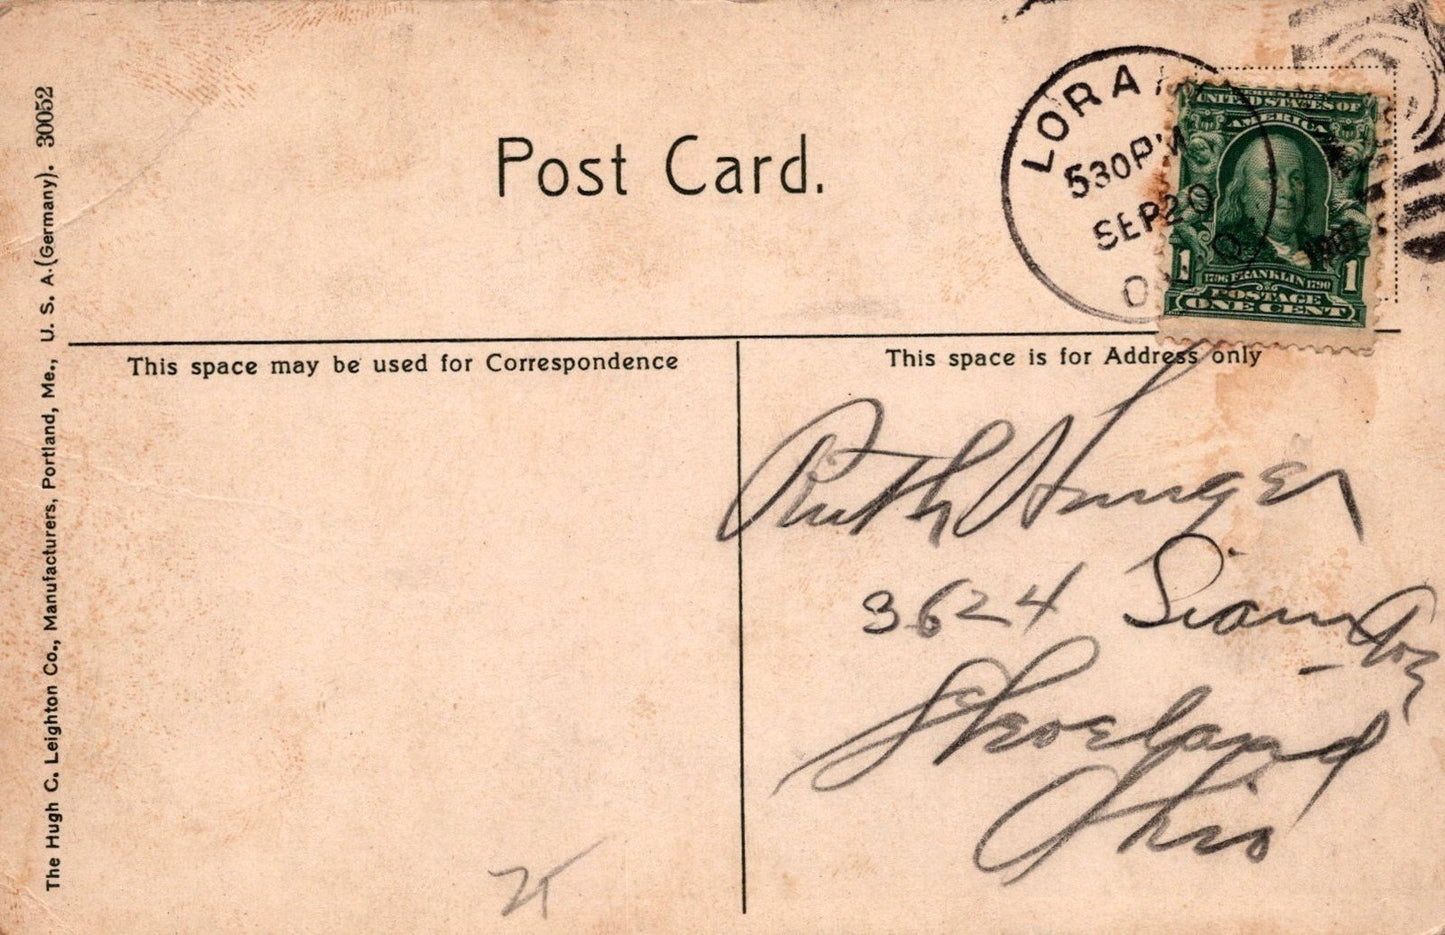 Post Card.
LORAIN
530PM
SEP 20
1907
O
SERIES 1902
UNITED STATES OF
AMERICA
1 1
1706 FRANKLIN 1790
POSTAGE
ONE CENT
This space may be used for Correspondence
This space is for Address only
Ruth
3624
Cleveland
Ohio
The Hugh C. Leighton Co., Manufacturers, Portland, Me., U. S. A. (Germany). 30052